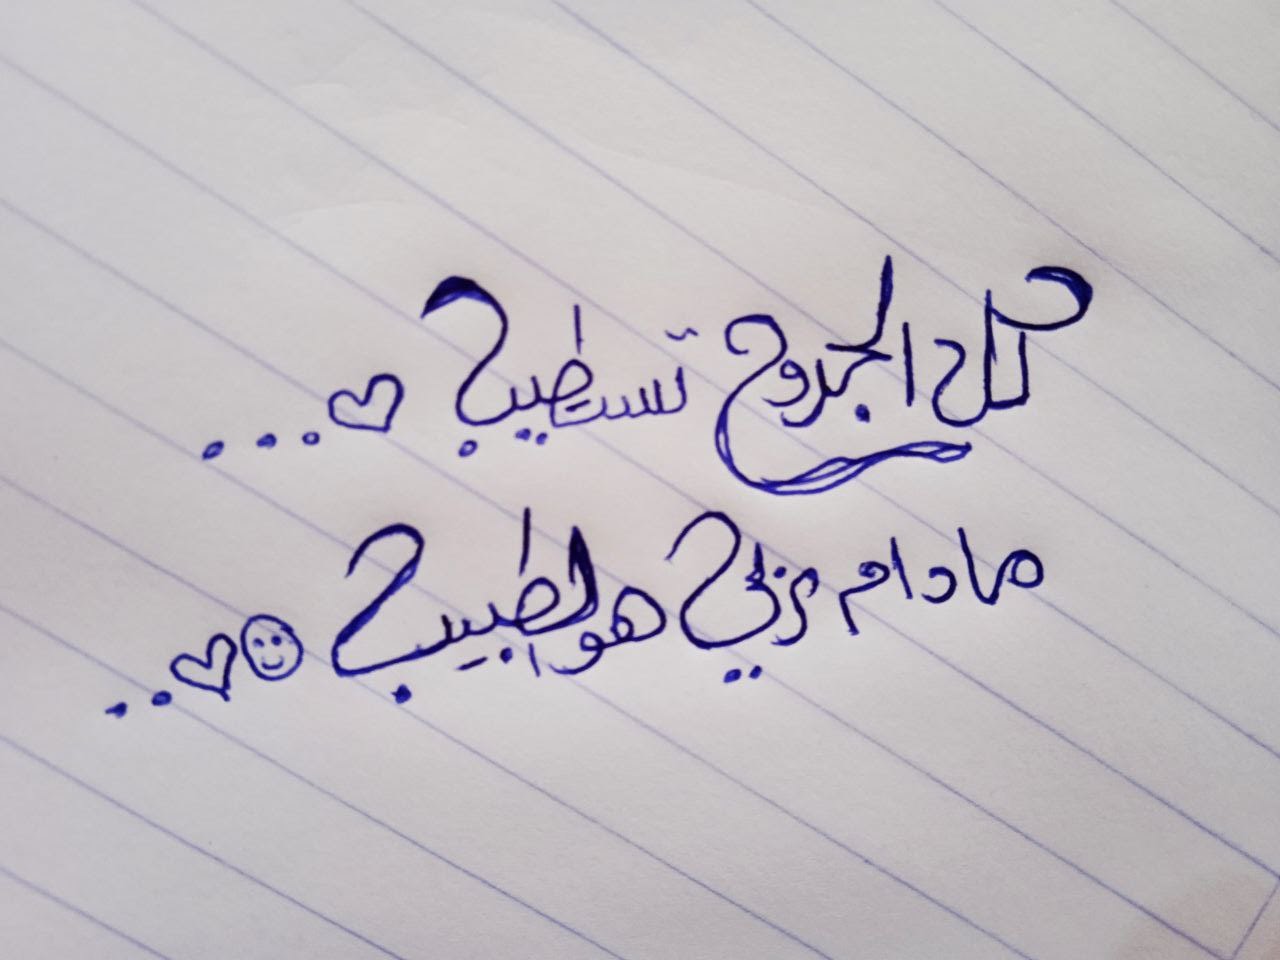 كل الجروح ستطيب ♡...
مادام ربي هو الطبيب ☺♡..